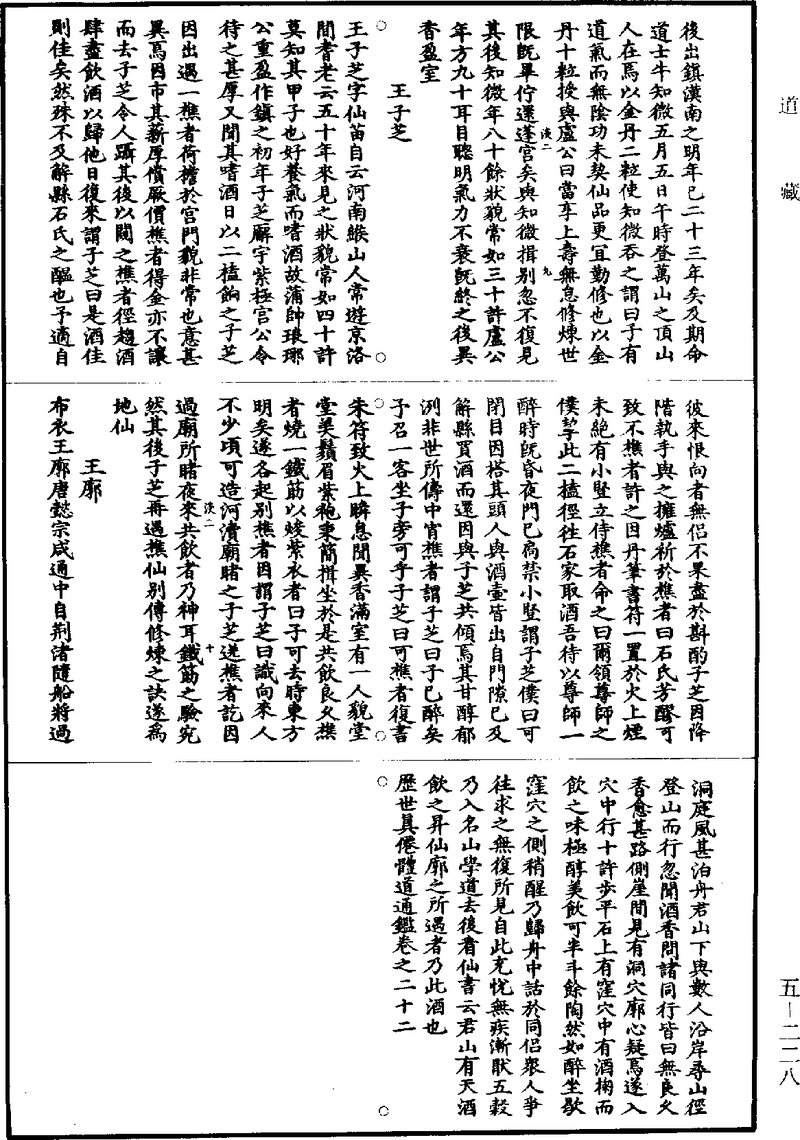 道藏
後出鎮漢南之明年已二十三年矣及期命
道士牛知微五月五日午時登萬山之頂山
人在焉以金丹二粒使知微吞之謂曰子有
道氣而無陰功未契仙品更宜勤修也以金
丹十粒授與盧公曰當享上壽無怠修煉世
限既畢佇還蓬宮矣與知微揖別忽不復見
淡二
九
其後知微年八十餘狀貌常如三十許盧公
年方九十耳目聰明氣力不衰既終之後異
香盈室
王子芝
王子芝字仙苗自云河南緱山人常遊京洛
間耆老云五十年來見之狀貌常如四十許
莫知其甲子也好養氣而嗜酒故蒲帥琅琊
公重盈作鎮之初年子芝屆於紫極宮公令
待之甚厚又聞其嗜酒日以二榼餉之子芝
因出遇一樵者荷擔於宮門貌非常也意甚
異焉因市其薪厚償厥價樵者得金亦不讓
而去子芝令人躡其後以闚之樵者徑趨酒
肆盡飲酒以歸他日復來謂子芝曰是酒佳
則佳矣然殊不及解縣石氏之醞也予適自
彼來恨向者無侶不果盡於斟酌子芝因降
階執手與之擁爐祈於樵者曰石氏芳醪可
致不樵者許之因丹筆書符一置於火上煙
未絕有小豎立侍樵者命之曰爾領尊師之
僕挈此二榼徑往石家取酒吾待以尊師一
醉時既昏夜門已扃禁小豎謂子芝僕曰可
閉目因搭其頭人與酒壺皆出自門隙已及
解縣買酒而還因與子芝共傾焉其甘醇郁
洌非世所儔中宵樵者謂子芝曰子已醉矣
予召一客坐子旁可乎子芝曰可樵者復書
朱符致火上瞬息聞異香滿室有一人貌堂
堂美鬚眉紫袍秉簡揖坐於是共飲良久樵
者燒一鐵筯以焌紫衣者曰子可去時東方
明矣遂各起別樵者因謂子芝曰識向來人
不少頃可造河瀆廟睹之子芝送樵者訖因
淡二
十
過廟所睹夜來共飲者乃神耳鐵筯之驗宛
然其後子芝再遇樵仙別傳修煉之訣遂為
地仙
王廓
布衣王廓唐懿宗咸通中自荆渚隨船將過
洞庭風甚泊舟君山下與數人沿岸尋山徑
登山而行忽聞酒香問諸同行皆曰無良久
香愈甚路側崖間見有洞穴廓心疑焉遂入
穴中行十許步平石上有窪穴中有酒掬而
飲之味極醇美飲可半斗餘陶然如醉坐歇
窪穴之側稍醒乃歸舟中話於同侶眾人爭
往求之無復所見自此充悅無疾漸猒五穀
乃入名山學道去後看仙書云君山有天酒
飲之昇仙廓之所遇者乃此酒也
歷世真僊體道通鑑卷之二十二
五-二二八